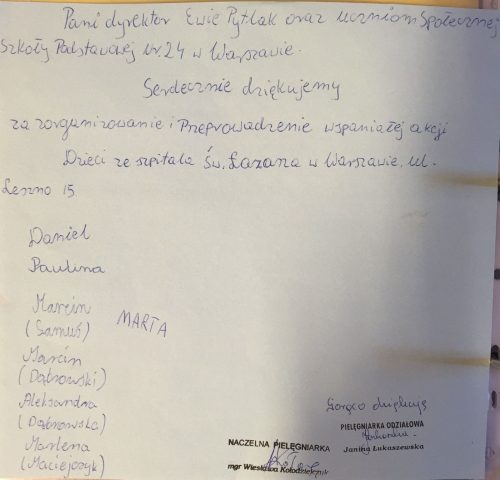 Pani dyrektor Ewie Pytlak oraz uczniom Społecznej
Szkoły Podstawowej Nr 24 w Warszawie.
Serdecznie dziękujemy
za zorganizowanie i Przeprowadzenie wspaniałej akcji
Dzieci ze szpitala Św. Łazarza w Warszawie, ul.
Leszno 15
Daniel
Paulina
Marcin
(Samuś)
MARTA
Marcin
(Dąbrowski)
Aleksandra
(Dąbrowska)
Marlena
(Maciejczyk)
Gorąco dziękuję
PIELĘGNIARKA ODZIAŁOWA
Janina Łukaszewska
NACZELNA PIELĘGNIARKA
mgr Wiesława Kołodziejczyk